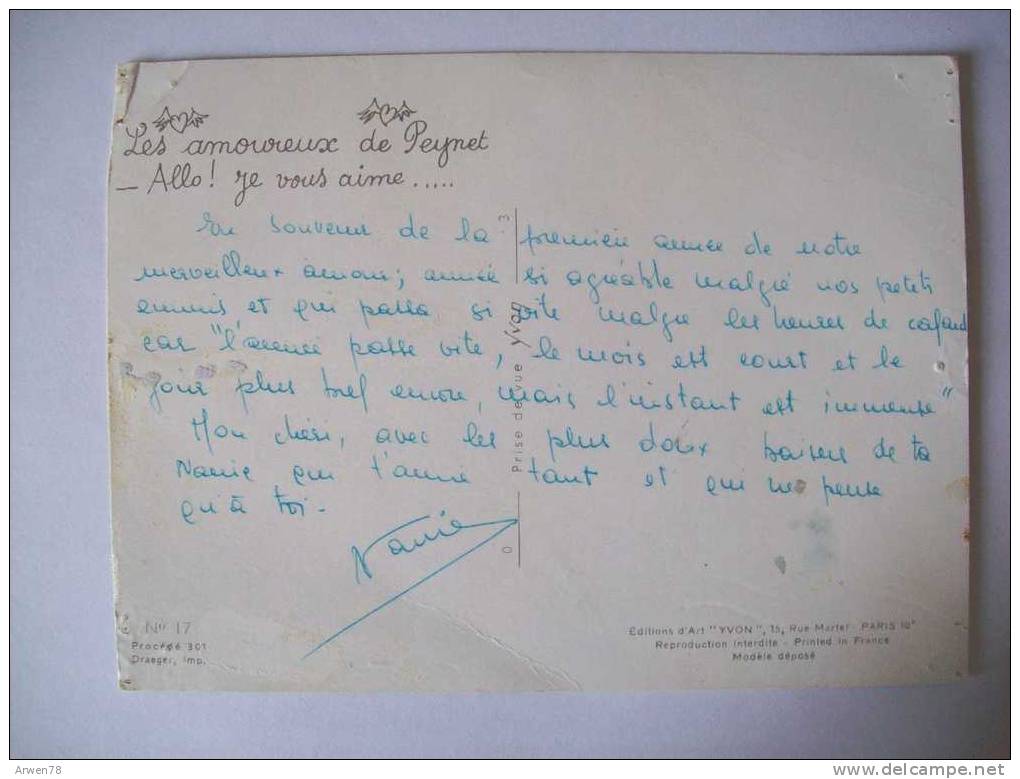 Les amoureux de Peynet
— Allo! je vous aime.....
En souvenir de la première année de notre
merveilleux amour; année si agréable malgré nos petits
ennuis et qui passa si vite malgré les heures de cafard
car "l'année passe vite, le mois est court et le
jour plus bref encore, mais l'instant est immense"
Mon chéri, avec les plus doux baisers de ta
Nanie qui t'aime tant et qui ne pense
qu'à toi-
Nanie
3
Prise de vue Yvon
0
No 17
Procédé 301
Draeger, imp.
Editions d'Art "YVON", 15, Rue Martel - PARIS 10e
Reproduction interdite - Printed in France
Modèle déposé
Arwen78
www.delcampe.net